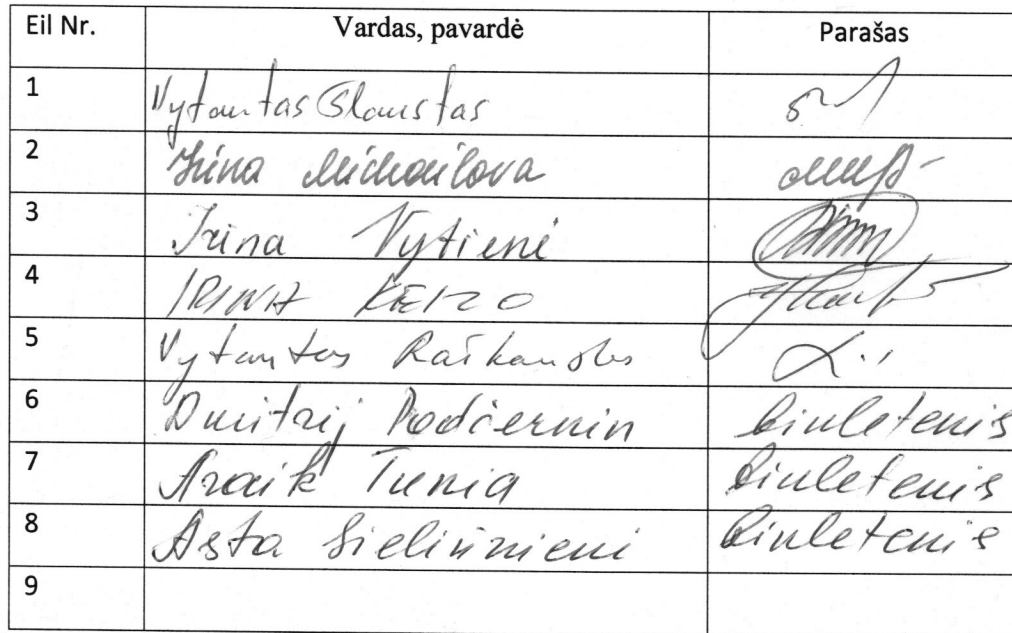 Eil Nr. Vardas, pavardė Parašas
1 Vytautas
2 Irina Michailova
3 Irina Vytienė
4 IRINA
5 Vytautas
6 Dmitrij Podčernin biuletenis
7 Araik Tunia biuletenis
8 Asta Sieliūnienė biuletenis
9